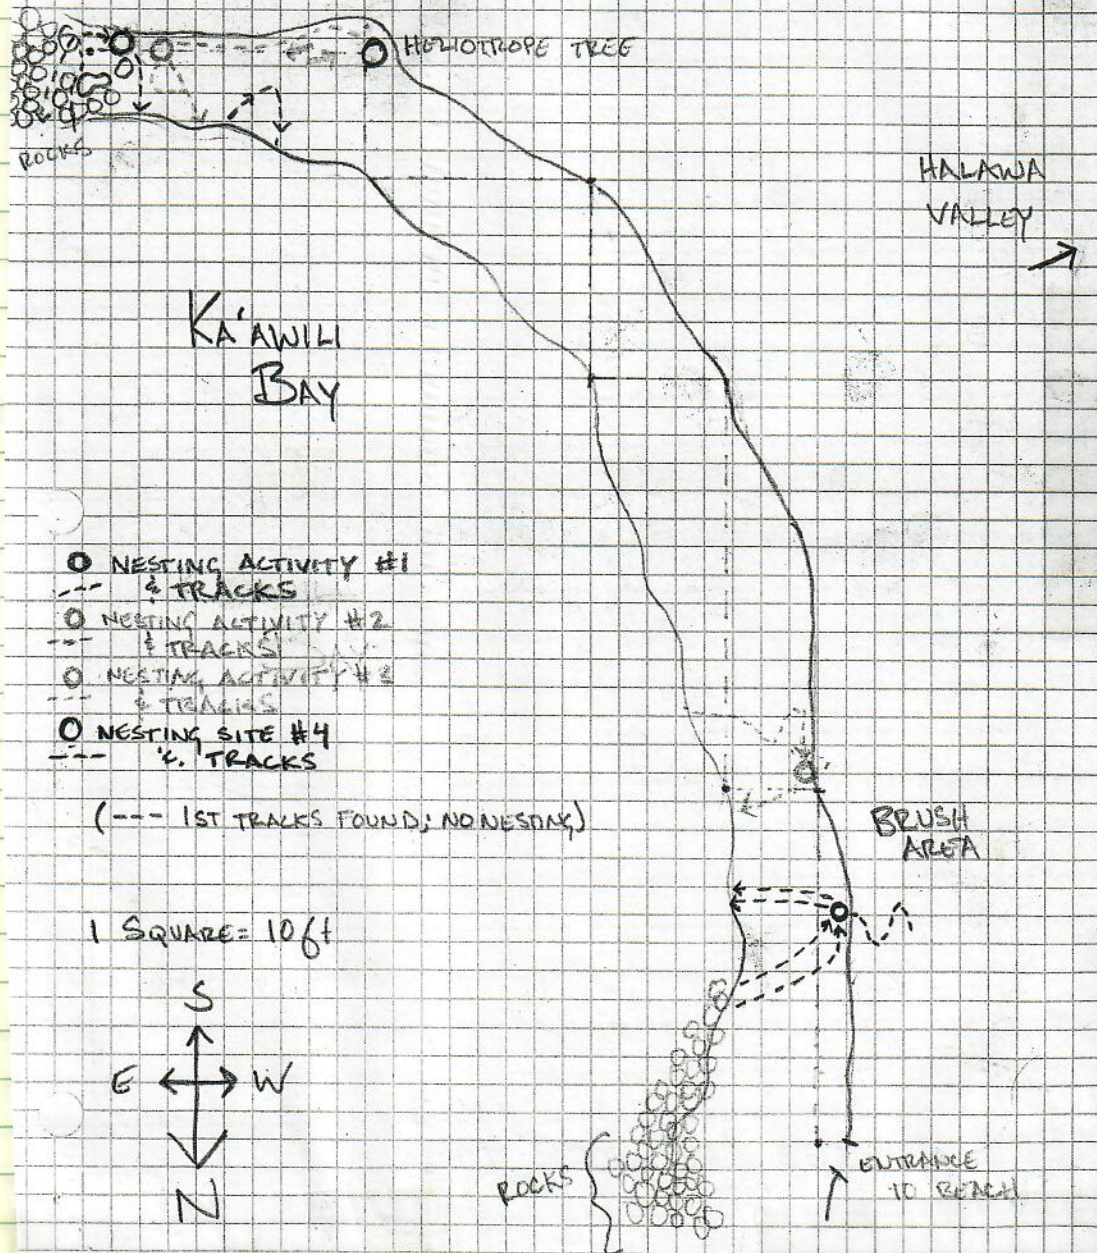 HELIOTROPE TREE
ROCKS
HALAWA
VALLEY
KA'AWILI
BAY
NESTING ACTIVITY #1
& TRACKS
NESTING ACTIVITY #2
& TRACKS
NESTING ACTIVITY #3
& TRACKS
NESTING SITE #4
& TRACKS
(--- 1ST TRACKS FOUND; NO NESTING)
BRUSH
AREA
1 SQUARE = 10 ft
S
E W
N
ROCKS
ENTRANCE
TO BEACH